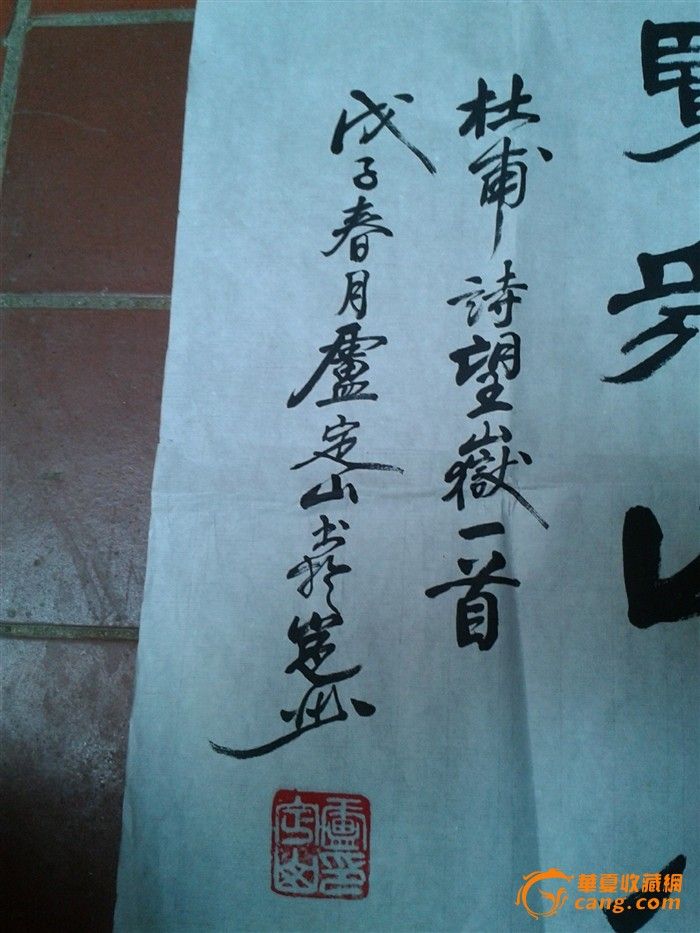 杜甫詩望嶽一首
戊子春月盧定山書於
盧印
定山
華夏收藏網
cang.com